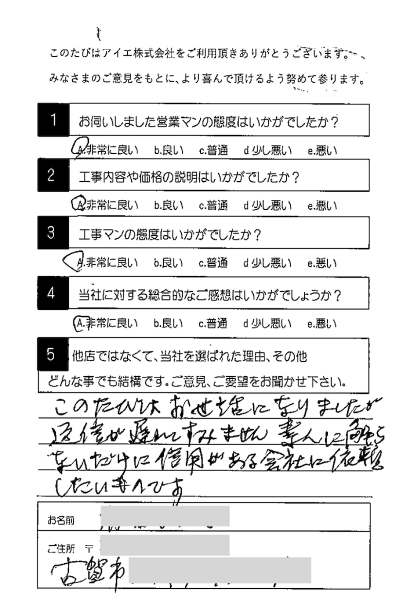 このたびはアイエ株式会社をご利用頂きありがとうございます。
みなさまのご意見をもとに、より喜んで頂けるよう努めて参ります。
1 お伺いしました営業マンの態度はいかがでしたか?
A.非常に良い b.良い c.普通 d 少し悪い e.悪い
2 工事内容や価格の説明はいかがでしたか?
A.非常に良い b.良い c.普通 d 少し悪い e.悪い
3 工事マンの態度はいかがでしたか?
A.非常に良い b.良い c.普通 d 少し悪い e.悪い
4 当社に対する総合的なご感想はいかがでしょうか?
A.非常に良い b.良い c.普通 d 少し悪い e.悪い
5 他店ではなくて、当社を選ばれた理由、その他
どんな事でも結構です。ご意見、ご要望をお聞かせ下さい。
このたびは お世話になりましたが
返信が遅れてすみません 素人に解ら
ないだけに信用がある会社に依頼
したい
お名前
ご住所 〒
古賀市